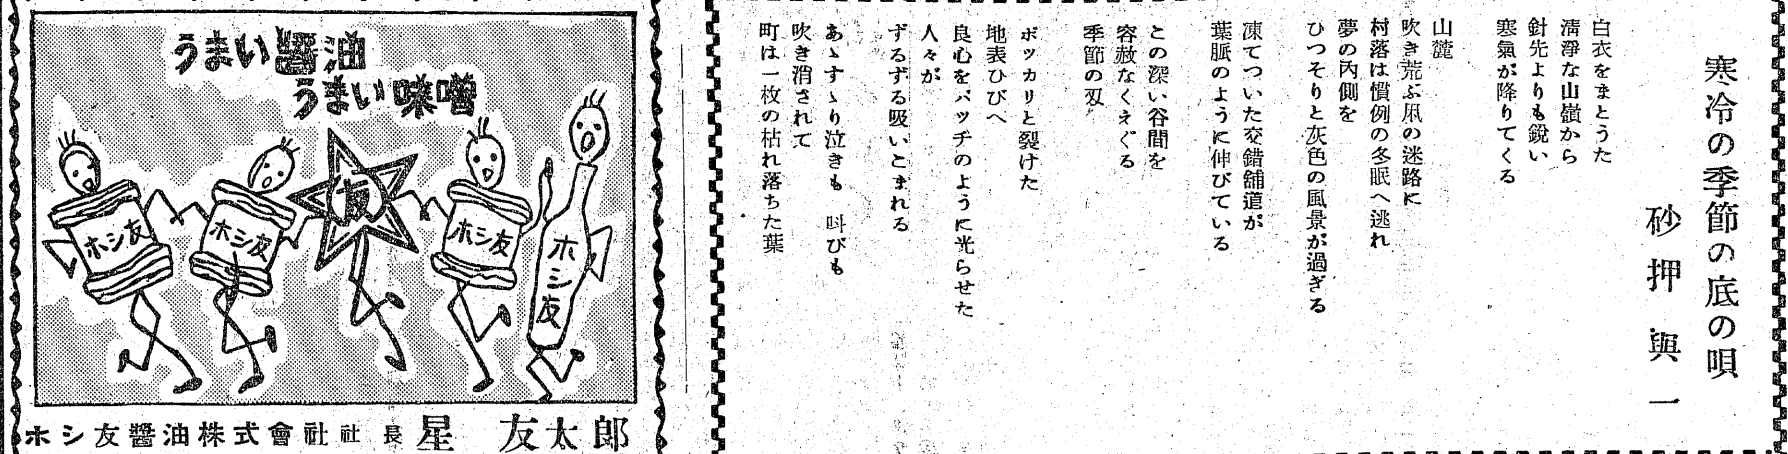 寒冷の季節の底の唄
砂押與一
白衣をまとうた
清淨な山嶺から
針先よりも鋭い
寒氣が降りてくる
山麓
吹き荒ぶ凩の迷路に
村落は慣例の冬眠へ逃れ
夢の内側を
ひつそりと灰色の風景が過ぎる
凍てついた交錯舗道が
葉脈のように伸びている
この深い谷間を
容赦なくえぐる
季節の刄
ポッカリと裂けた
地表ひびへ
良心をバッチのように光らせた
人々が
ずるずる吸いこまれる
あゝすゝり泣きも 叫びも
吹き消されて
町は一枚の枯れ落ちた葉
うまい醤油
うまい味噌
ホシ友
ホシ友
友
ホシ友
ホシ友
ホシ友醬油株式會社社長 星 友太郎